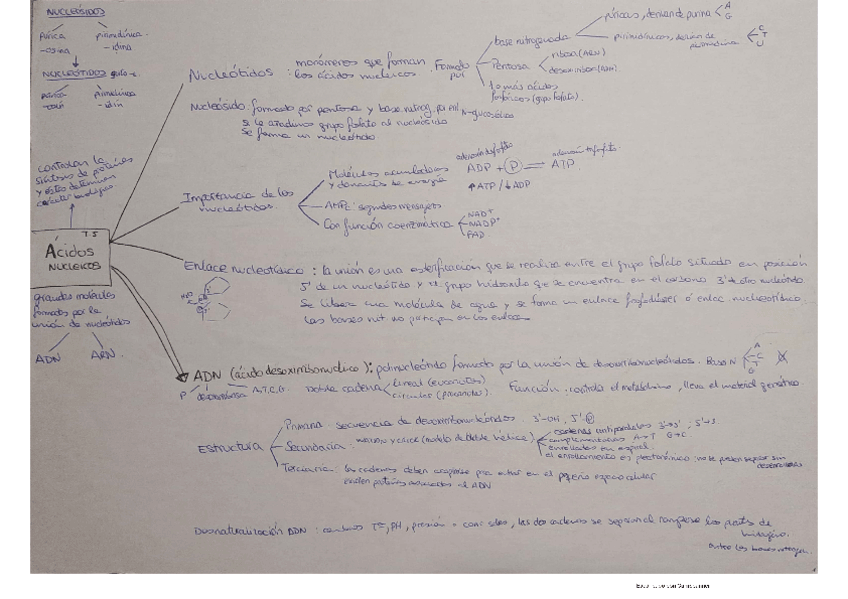 NUCLEÓSIDOS
púrica
-osina
pirimidínica
-idina
NUCLEÓTIDOS
púrica
pirimidínica
controlan la
síntesis de proteínas
y éstos determinan
T5
Ácidos
NUCLEICOS
grandes moléculas
formadas por la
unión de nucleótidos
ADN
ARN
Nucleótidos : monómeros que forman
los ácidos nucleicos. Formado
por
base nitrogenada
púricas, derivan de purina
A
G
pirimidínicas, derivan de
pirimidina
C
T
U
Pentosa
ribosa (ARN)
desoxirribosa (ADN)
1 o más ácidos
fosfóricos (grupo fosfato)
Nucleósido: formado por pentosa y base nitrog.
si le añadimos grupo fosfato al nucleósido
se forma un nucleótido
Importancia de los
nucleótidos.
Moléculas acumuladoras
y donantes de energía
ADP + P = ATP
↑ATP/↓ADP
AMPc segundos mensajeros
Con función coenzimática
NAD+
NADP+
FAD
Enlace nucleotídico : la unión es una esterificación que se realiza entre el grupo fosfato situado en posición
5' de un nucleótido y el grupo hidroxilo que se encuentra en el carbono 3' de otro nucleótido
Se libera una molécula de agua y se forma un enlace fosfodiéster o enlac. nucleotídico.
Las bases nit. no participan en los enlaces
ADN (ácido desoxirribonucleico): polinucleótido formado por la unión de desoxirribonucleótidos. Bases N
A
C
T
G
P
desoxirribosa
A,T,C,G
Doble cadena
Lineal (eucariotas)
circular (procariotas)
Función: controla el metabolismo, lleva el material genético
Estructura
Primaria: secuencia de desoxirribonucleótidos 3'-OH, 5'-P
Secundaria
Watson y Crick (modelo de doble hélice)
cadenas antiparalelas
complementarias A=T G≡C
enrolladas en espiral
el enrollamiento es plectonémico: no se pueden separar sin
desenrollarse
Terciaria: las cadenas deben acoplarse para entrar en el pequeño espacio celular
existen proteínas asociadas al ADN
Desnaturalización ADN: cambios Tª, PH, presión o conc. sales, las dos cadenas se separan al romperse los puents de
hidrógeno.
entre las bases nitrogen.